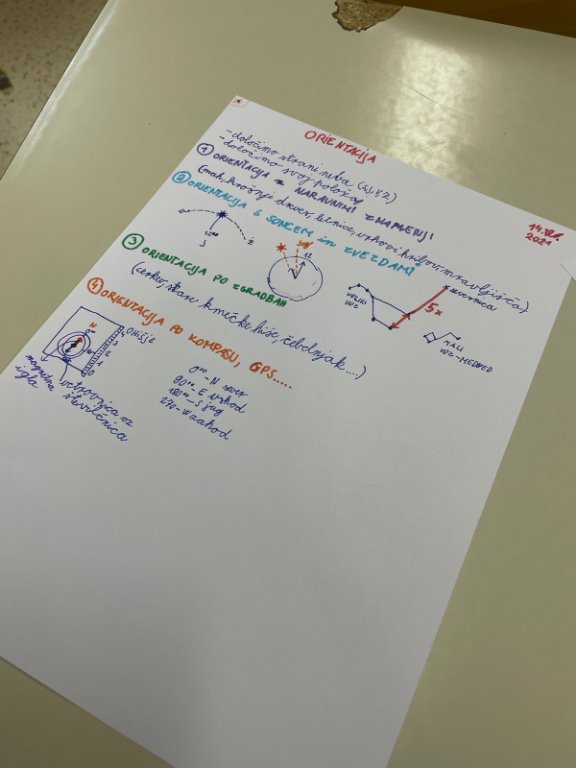 ORIENTACIJA
14. 
2021
- določimo strani neba (S, J, V, Z)
- določimo svoj položaj
1 ORIENTACIJA Z NARAVNIMI ZNAMENJI
(mah, krošnje dreves, letnice, vzhodi hribov, mravljišča)
2 ORIENTACIJA S SONCEM in ZVEZDAMI
12
J
Z
12
VELIKI
VOZ
5x
SEVERNICA
MALI
VOZ - MEDVED
3 ORIENTACIJA PO ZGRADBAH
(cerkev, stare kmečke hiše, čebelnjak ....)
4 ORIENTACIJA PO KOMPASU, GPS.....
N
0°°
OHIŠJE
1
2
3
4
magnetna
igla
vetrovnica oz
številčnica
0°° - N sever
90°° - E vzhod
180°° - S jug
270 - W zahod